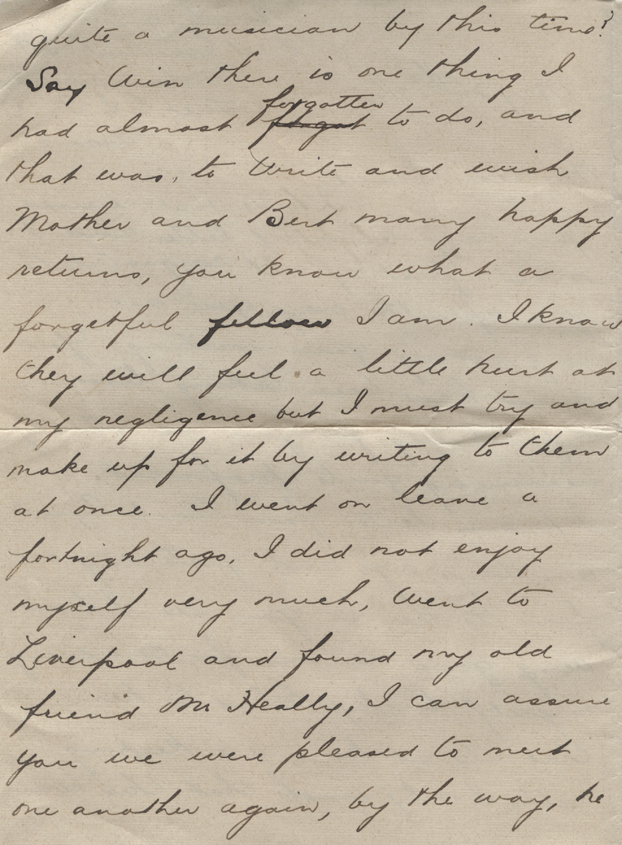 quite a musician by this time?
Say Win there is one thing I
had almost forgot forgotten to do, and
that was, to Write and wish
Mother and Bert many happy
returns, you know what a
forgetful fellow I am. I know
they will feel a little hurt at
my negligence but I must try and
make up for it by writing to them
at once. I went on leave a
fortnight ago, I did not enjoy
myself very much, Went to
Liverpool and found my old
friend Mr Heally, I can assure
you we were pleased to meet
one another again, by the way, he